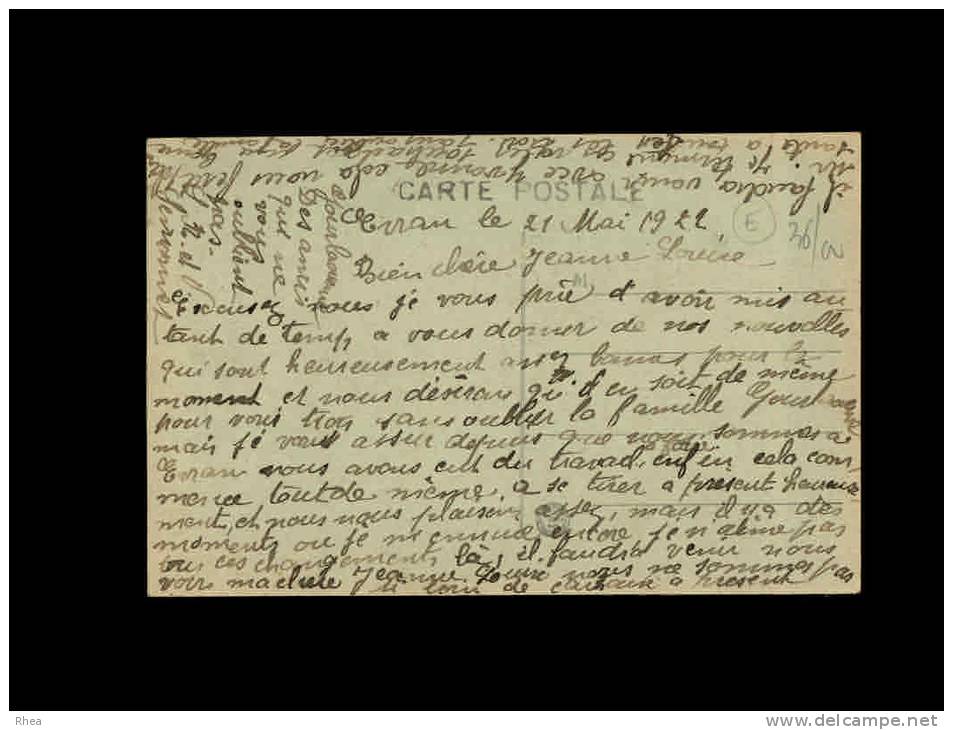 CARTE POSTALE
Evran le 21 Mai 1922
E
36/
Bien chère Jeanne Louise
Excusez nous je vous prie d'avoir mis au
tant de temps a vous donner de nos nouvelles
qui sont heureusement assez pour le
moment et nous désirons qu'il en soit de même
pour vous trois sans oublier la famille
mais je vous assur depuis que nous sommes a
Evran nous avons eut du travail, enfin cela com
mence tout de même, a se tirer a present heureuse
ment, et nous nous plaisons assez, mais il y a des
moments ou je m'ennuie encore je n'aime pas
tous ces changements là, il faudra venir nous
voir ma chère Jeanne Louise nous ne sommes pas
si loin de a present
il faudra venir avec Yvonne cela vous ferait
Je termine
a tous
Des amis
qui ne
vous
oublient
pas
Rhea
www.delcampe.net